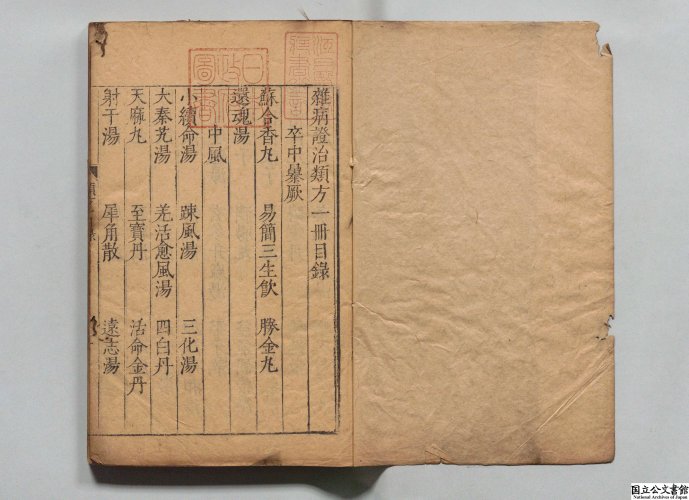 雜病證治類方一冊目錄
卒中暴厥
蘇合香丸　易簡三生飮　勝金丸
還魂湯
中風
小續命湯　踈風湯　三化湯
大秦艽湯　羌活愈風湯　四白丹
天麻丸　至寶丹　活命金丹
射干湯　犀角散　遠志湯
国立公文書館
National Archives of Japan